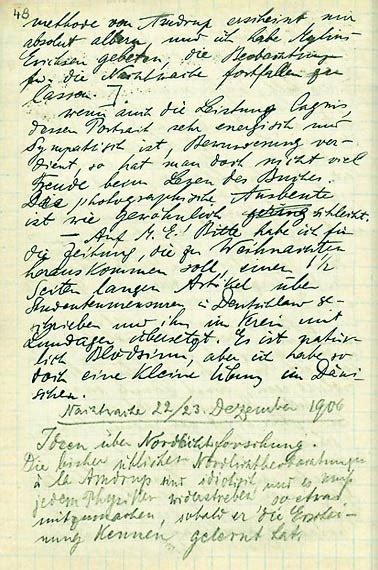 48
methode von Amdrup erscheint mir
absolut albern und ich habe Mylius-
Erichsen gebeten, die Beobachtung
für die Nachtwache fortfallen zu
lassen.
wenn auch die Leistung Cagnis,
dessen Portrait sehr energisch und
sympathisch ist, Bewunderung ver-
dient, so hat man doch nicht viel
Freude beim Lesen des Buches.
Das photographische Ausbeute
ist wie gewöhnlich gering schlecht.
— Auf M. E.' Bitte habe ich für
die Zeitung, die zu Weihnachten
herauskommen soll, einen 1½
Seiten langen Artikel über
Studentenmensuren in Deutschland ge-
schrieben und ihn im Verein mit
Lundager übersetzt. Es ist natür-
lich Blödsinn, aber ich habe so
doch eine kleine Übung im Däni-
schen.
Nachtwache 22/23. Dezember 1906
Ideen über Nordlichtforschung.
Die bisher üblichen Nordlichtbeobachtungen
à la Amdrup sind idiotisch und es muß
jedem Physiker widerstreben so etwas
mitzumachen, sobald er die Erschei-
nung kennen gelernt hat.